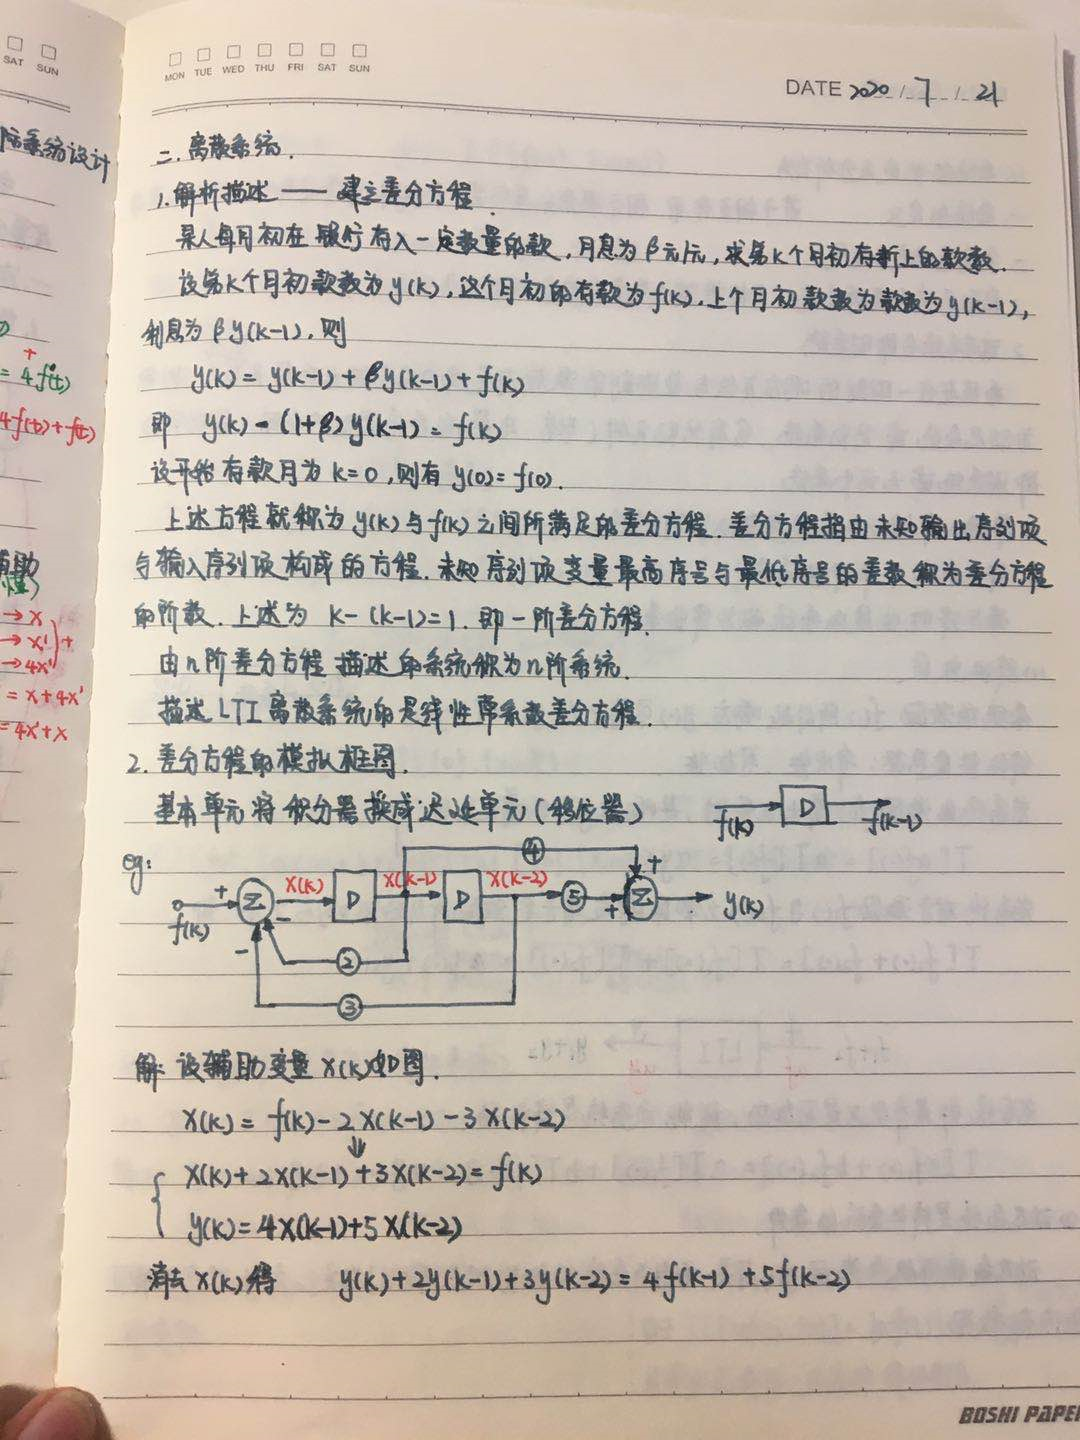 SAT SUN
MON TUE WED THU FRI SAT SUN
DATE 2020 / 7 / 21
系统设计
= 4f(t)
4f(t) + f(t)
辅助
→ x
→ x'
→ 4x'
= x + 4x'
= 4x' + x
二. 离散系统.
1. 解析描述 —— 建立差分方程.
某人每月初在银行存入一定数量的款, 月息为β元/元, 求第k个月初存折上的款数.
设第k个月初款数为y(k), 这个月初的存款为f(k), 上个月初款数为款数为y(k-1),
利息为βy(k-1), 则
y(k) = y(k-1) + βy(k-1) + f(k)
即 y(k) - (1+β)y(k-1) = f(k)
设开始存款月为k=0, 则有 y(0) = f(0).
上述方程就称为y(k)与f(k)之间所满足的差分方程. 差分方程指由未知输出序列项
与输入序列项构成的方程. 未知序列项变量最高序号与最低序号的差数称为差分方程
的阶数. 上述为 k-(k-1)=1. 即一阶差分方程.
由n阶差分方程描述的系统称为n阶系统.
描述LTI离散系统的是线性常系数差分方程.
2. 差分方程的模拟框图.
基本单元将积分器换成迟延单元(移位器)
f(k) D f(k-1)
eg:
④ +
+ Σ - X(k) D X(k-1) D X(k-2) ⑤ + Σ y(k)
f(k)
- ②
③
解: 设辅助变量 X(k)如图.
X(k) = f(k) - 2X(k-1) - 3X(k-2)
⇓
X(k) + 2X(k-1) + 3X(k-2) = f(k)
y(k) = 4X(k-1) + 5X(k-2)
消去X(k)得 y(k) + 2y(k-1) + 3y(k-2) = 4f(k-1) + 5f(k-2)
BOSHI PAPE